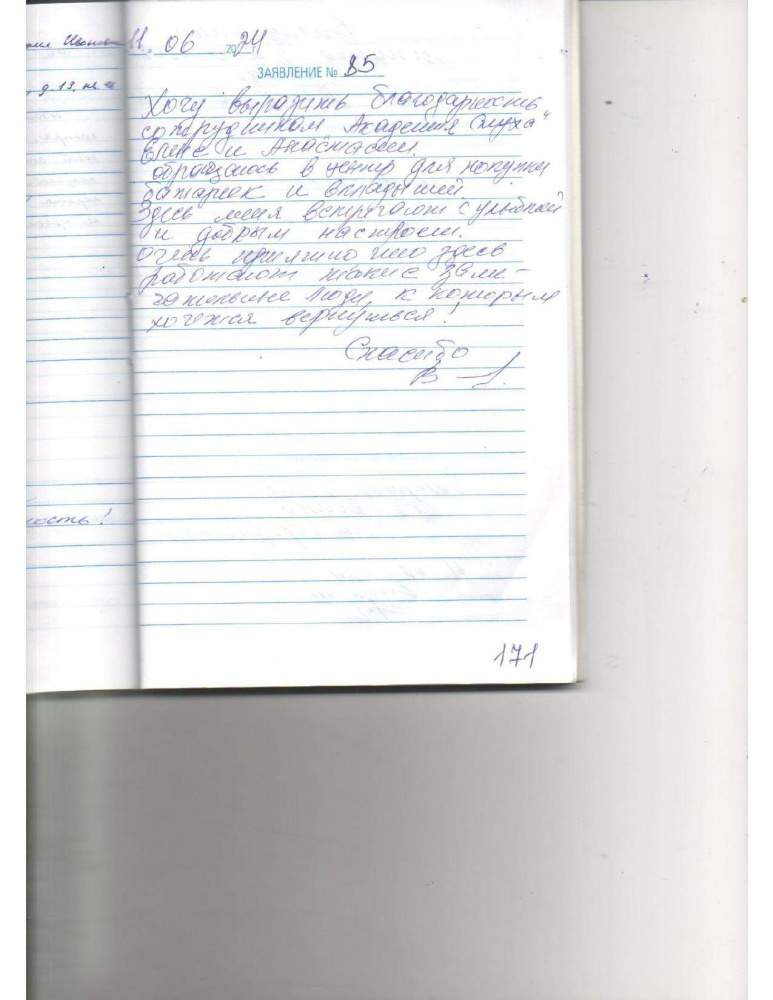 11. 06 2024
ЗАЯВЛЕНИЕ № 85
Хочу выразить благодарность
сотрудникам Академия Слуха"
Елене и Анастасии.
обращаюсь в центр для покупки
батареек и вкладышей.
Здесь меня встречают с улыбкой
и добрым настроем.
очень приятно что здесь
работают такие заме-
чательные люди, к которым
хочется вернуться!
Спасибо
д. 13, кв.
ность!
171